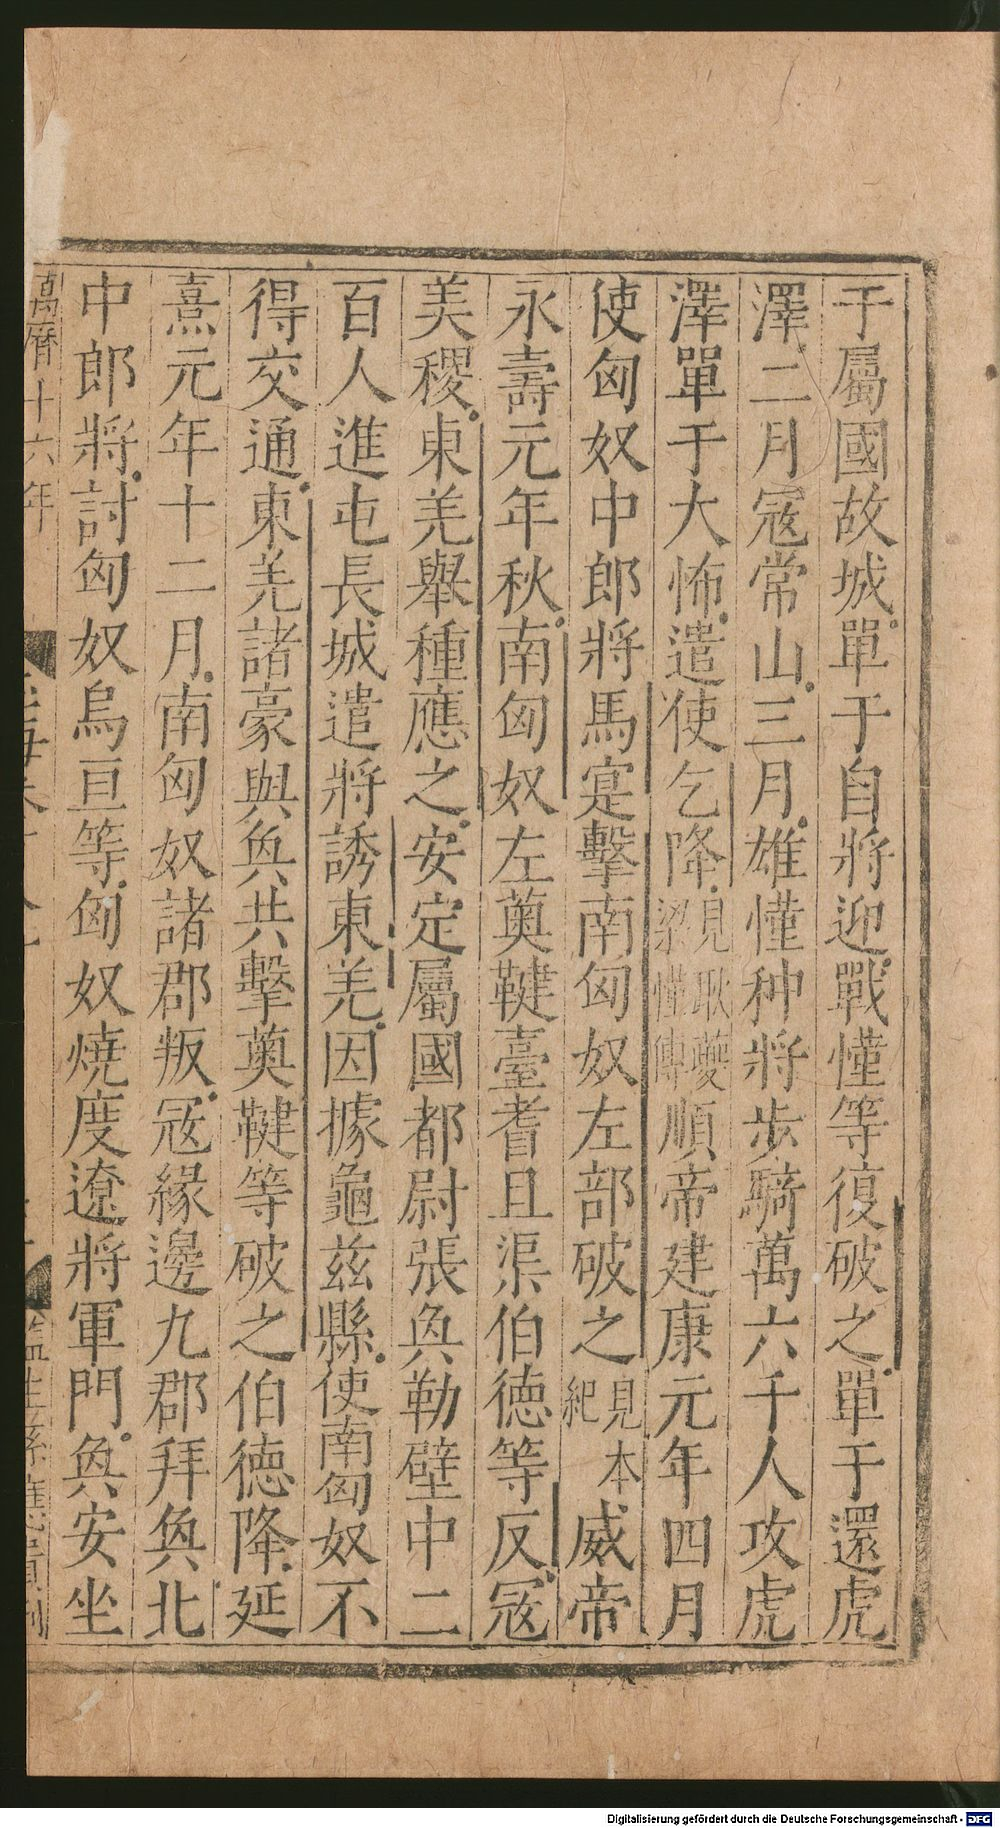 于屬國故城單于自將迎戰懂等復破之單于還虎
澤二月冦常山三月雄懂种將步騎萬六千人攻虎
澤單于大怖遣使乞降見耿夔梁懂傳順帝建康元年四月
使匈奴中郎將馬寔擊南匈奴左部破之見本紀威帝
永壽元年秋南匈奴左薁鞬臺耆且渠伯德等反冦
美稷東羌舉種應之安定屬國都尉張奐勒壁中二
百人進屯長城遣將誘東羌因據龜茲縣使南匈奴不
得交通東羌諸豪與奐共擊薁鞬等破之伯德降延
熹元年十二月南匈奴諸郡叛冦緣邊九郡拜奐北
中郎將討匈奴烏亘等匈奴燒度遼將軍門奐安坐
萬曆十六年
監生孫
Digitalisierung gefördert durch die Deutsche Forschungsgemeinschaft - DFG